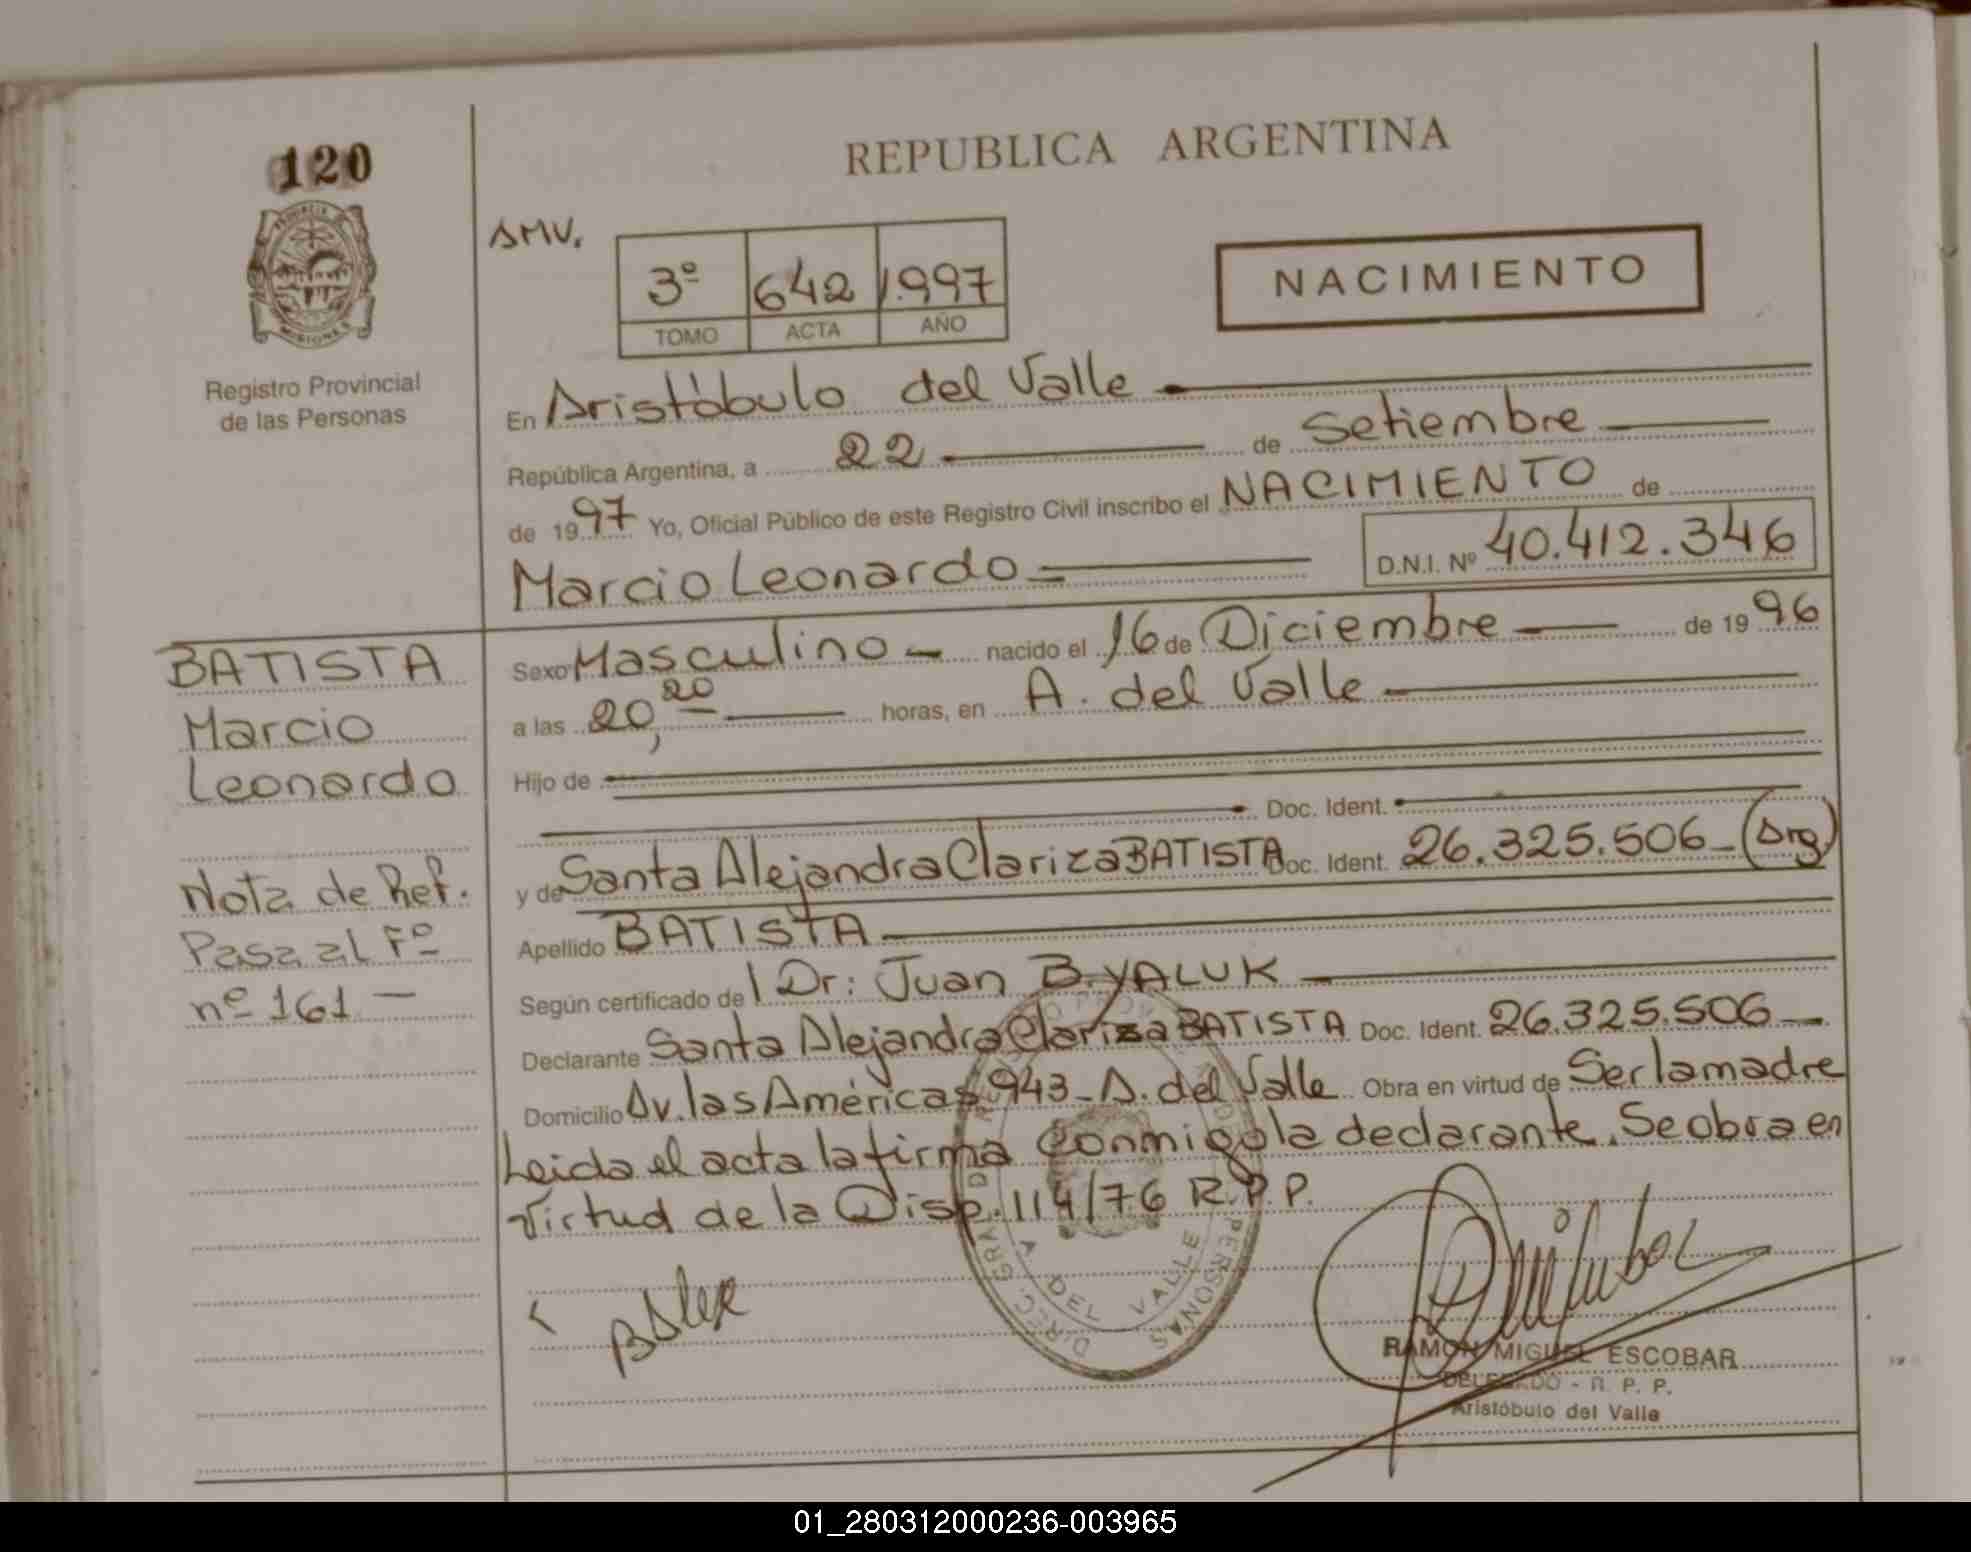 120
REPUBLICA ARGENTINA
PROVINCIA DE
MISIONES
Registro Provincial
de las Personas
AMV.
3º 642 1.997
TOMO ACTA AÑO
NACIMIENTO
En Aristóbulo del Valle
República Argentina, a 22 de Setiembre
de 1997 Yo, Oficial Público de este Registro Civil inscribo el NACIMIENTO de
Marcio Leonardo D.N.I. Nº 40.412.346
BATISTA
Marcio
Leonardo
Nota de Ref.
Pasa al Fº
nº 161 -
Sexo Masculino - nacido el 16 de Diciembre de 1996
a las 20,20 horas, en A. del Valle
Hijo de
Doc. Ident.
y de Santa Alejandra Clariza BATISTA Doc. Ident. 26.325.506 - (Arg.)
Apellido BATISTA
Según certificado de l Dr: Juan B. YALUK
Declarante Santa Alejandra Clariza BATISTA Doc. Ident. 26.325.506 -
Domicilio Av. las Américas 943 - A. del Valle Obra en virtud de Ser la madre
Leida el acta la firma conmigo la declarante. Se obra en
virtud de la Disp. 114/76 R.P.P.
DIREC. GRAL. PERSONAS
A DEL VALLE
RAMON MIGUEL ESCOBAR
DELEGADO - R. P. P.
Aristóbulo del Valle
01_280312000236-003965